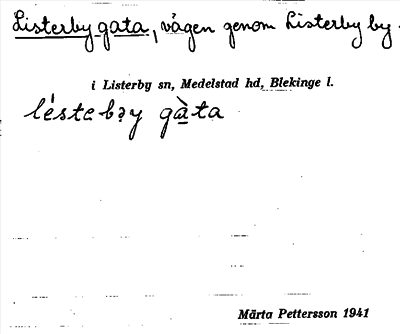 Listerby gata, vägen genom Listerby by.
i Listerby sn, Medelstad hd, Blekinge l.
lésteb̥ay gàta
Märta Pettersson 1941